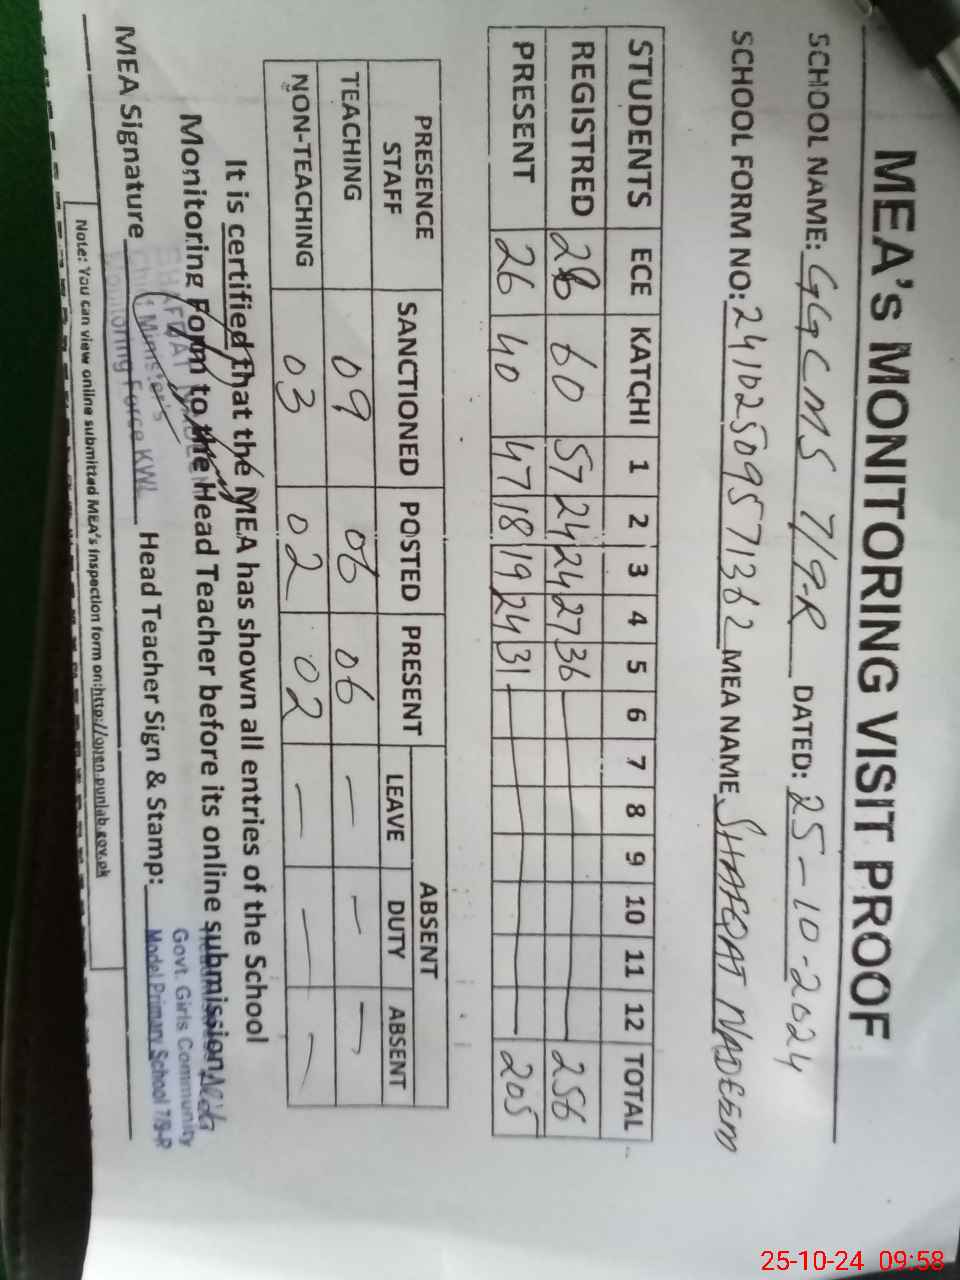 MEA's MONITORING VISIT PROOF
SCHOOL NAME: GGCMS 7/9-R DATED: 25-10-2024
SCHOOL FORM NO: 24102509571362 MEA NAME SHAFQAT NADEEM
STUDENTS ECE KATCHI 1 2 3 4 5 6 7 8 9 10 11 12 TOTAL
REGISTRED 28 60 57 24 24 27 36 256
PRESENT 26 40 47 18 19 24 31 205
PRESENCE STAFF SANCTIONED POSTED PRESENT ABSENT
LEAVE DUTY ABSENT
TEACHING 09 06 06 — — —
NON-TEACHING 03 02 02 — — —
It is certified that the MEA has shown all entries of the School
Monitoring Form to the Head Teacher before its online submission
MEA Signature Head Teacher Sign & Stamp:
Chief Minister's
Monitoring Force KWL
Govt. Girls Community
Model Primary School 7/9-R
Note: You can view online submitted MEA's inspection form on:http://open.punjab.gov.pk
25-10-24 09:58